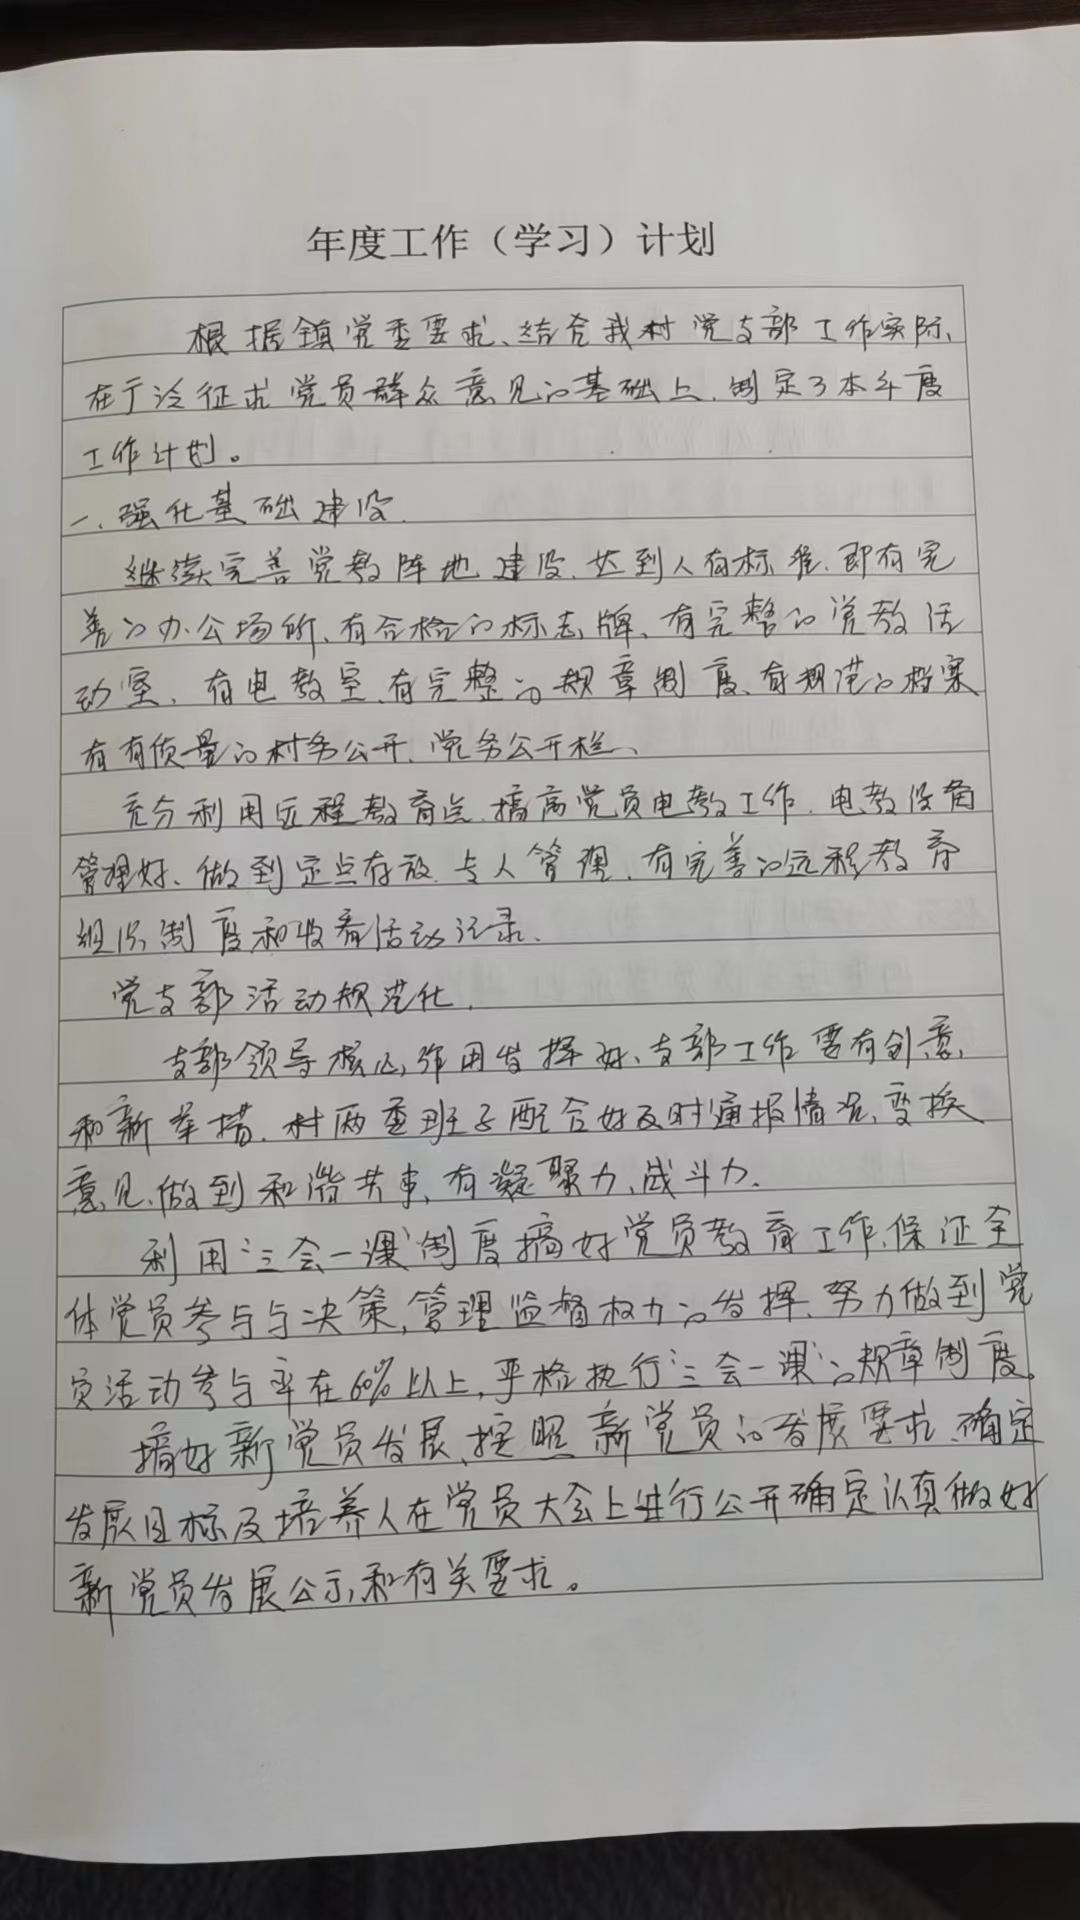 年度工作（学习）计划
根据镇党委要求、结合我村党支部工作实际、
在广泛征求党员群众意见的基础上.制定了本年度
工作计划。
一、强化基础建设.
继续完善党教阵地建设.达到八有标准.即有完
善的办公场所、有合格的标志牌、有完整的党教活
动室、有电教室、有完整的规章制度、有规范的档案
有有质量的村务公开、党务公开栏、
充分利用远程教育点.搞高党员电教工作.电教设备
管理好、做到定点存放.专人管理、有完善的远程教育
组织制度和收看活动记录、
党支部活动规范化.
支部领导核心,作用发挥好、支部工作要有创意,
和新举措.村两委班子配合好及时通报情况、变换
意见、做到和谐共事,有凝聚力、战斗力.
利用“三会一课”制度搞好党员教育工作、保证全
体党员参与与决策,管理监督权力的发挥、努力做到党
员活动参与率在60%以上,严格执行“三会一课”的规章制度.
搞好新党员发展、按照新党员的发展要求、确定
发展目标及培养人在党员大会上进行公开确定认真做好
新党员发展公示和有关要求。